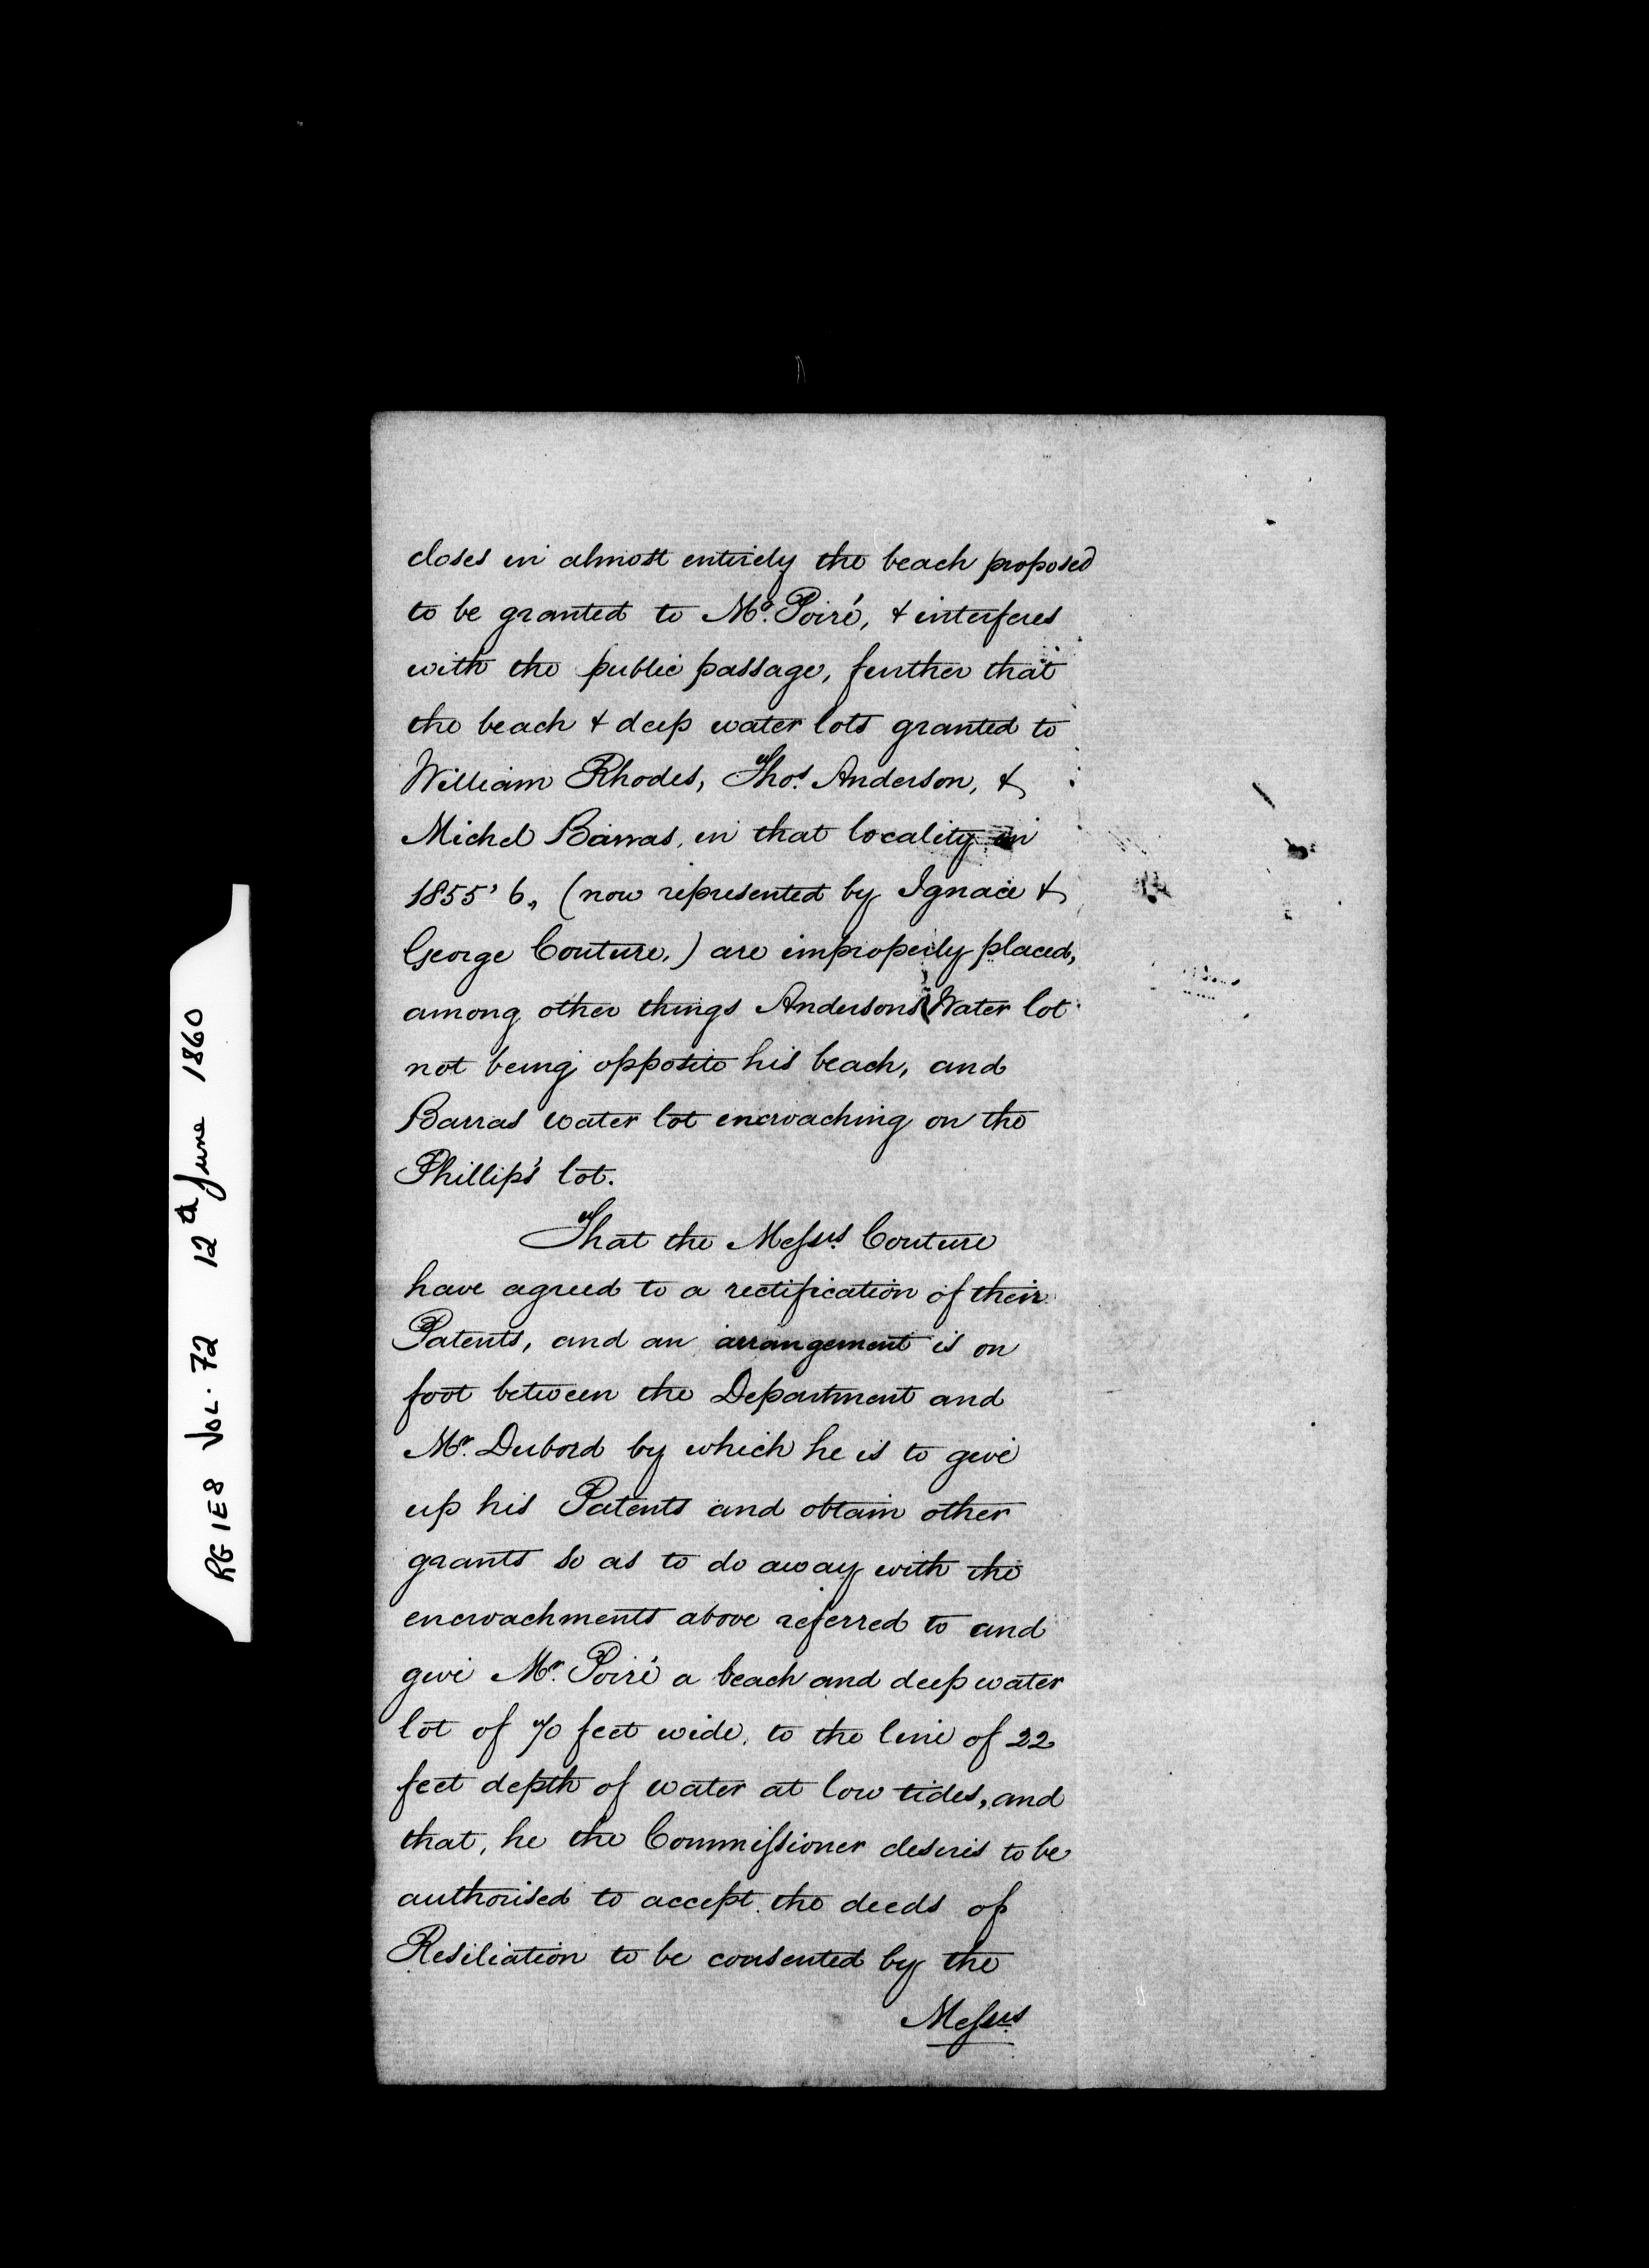 closes in almost entirely the beach proposed
to be granted to Mr. Poiré, & interferes
with the public passage, further that
the beach & deep water lots granted to
William Rhodes, Thos. Anderson, &
Michel Barras, in that locality in
1855' 6, (now represented by Ignace &
George Couture,) are improperly placed,
among other things Andersons Water lot
not being opposite his beach, and
Barras water lot encroaching on the
Phillip's lot.
That the Messrs. Couture
have agreed to a rectification of their
Patents, and an arrangement is on
foot between the Department and
Mr. Dubord by which he is to give
up his Patents and obtain other
grants so as to do away with the
encroachments above referred to and
give Mr. Poiré a beach and deep water
lot of 70 feet wide, to the line of 22
feet depth of water at low tides, and
that, he the Commissioner desires to be
authorised to accept the deeds of
Resiliation to be consented by the
Messrs.
RG 1 E8 VOL. 72 12th June 1860